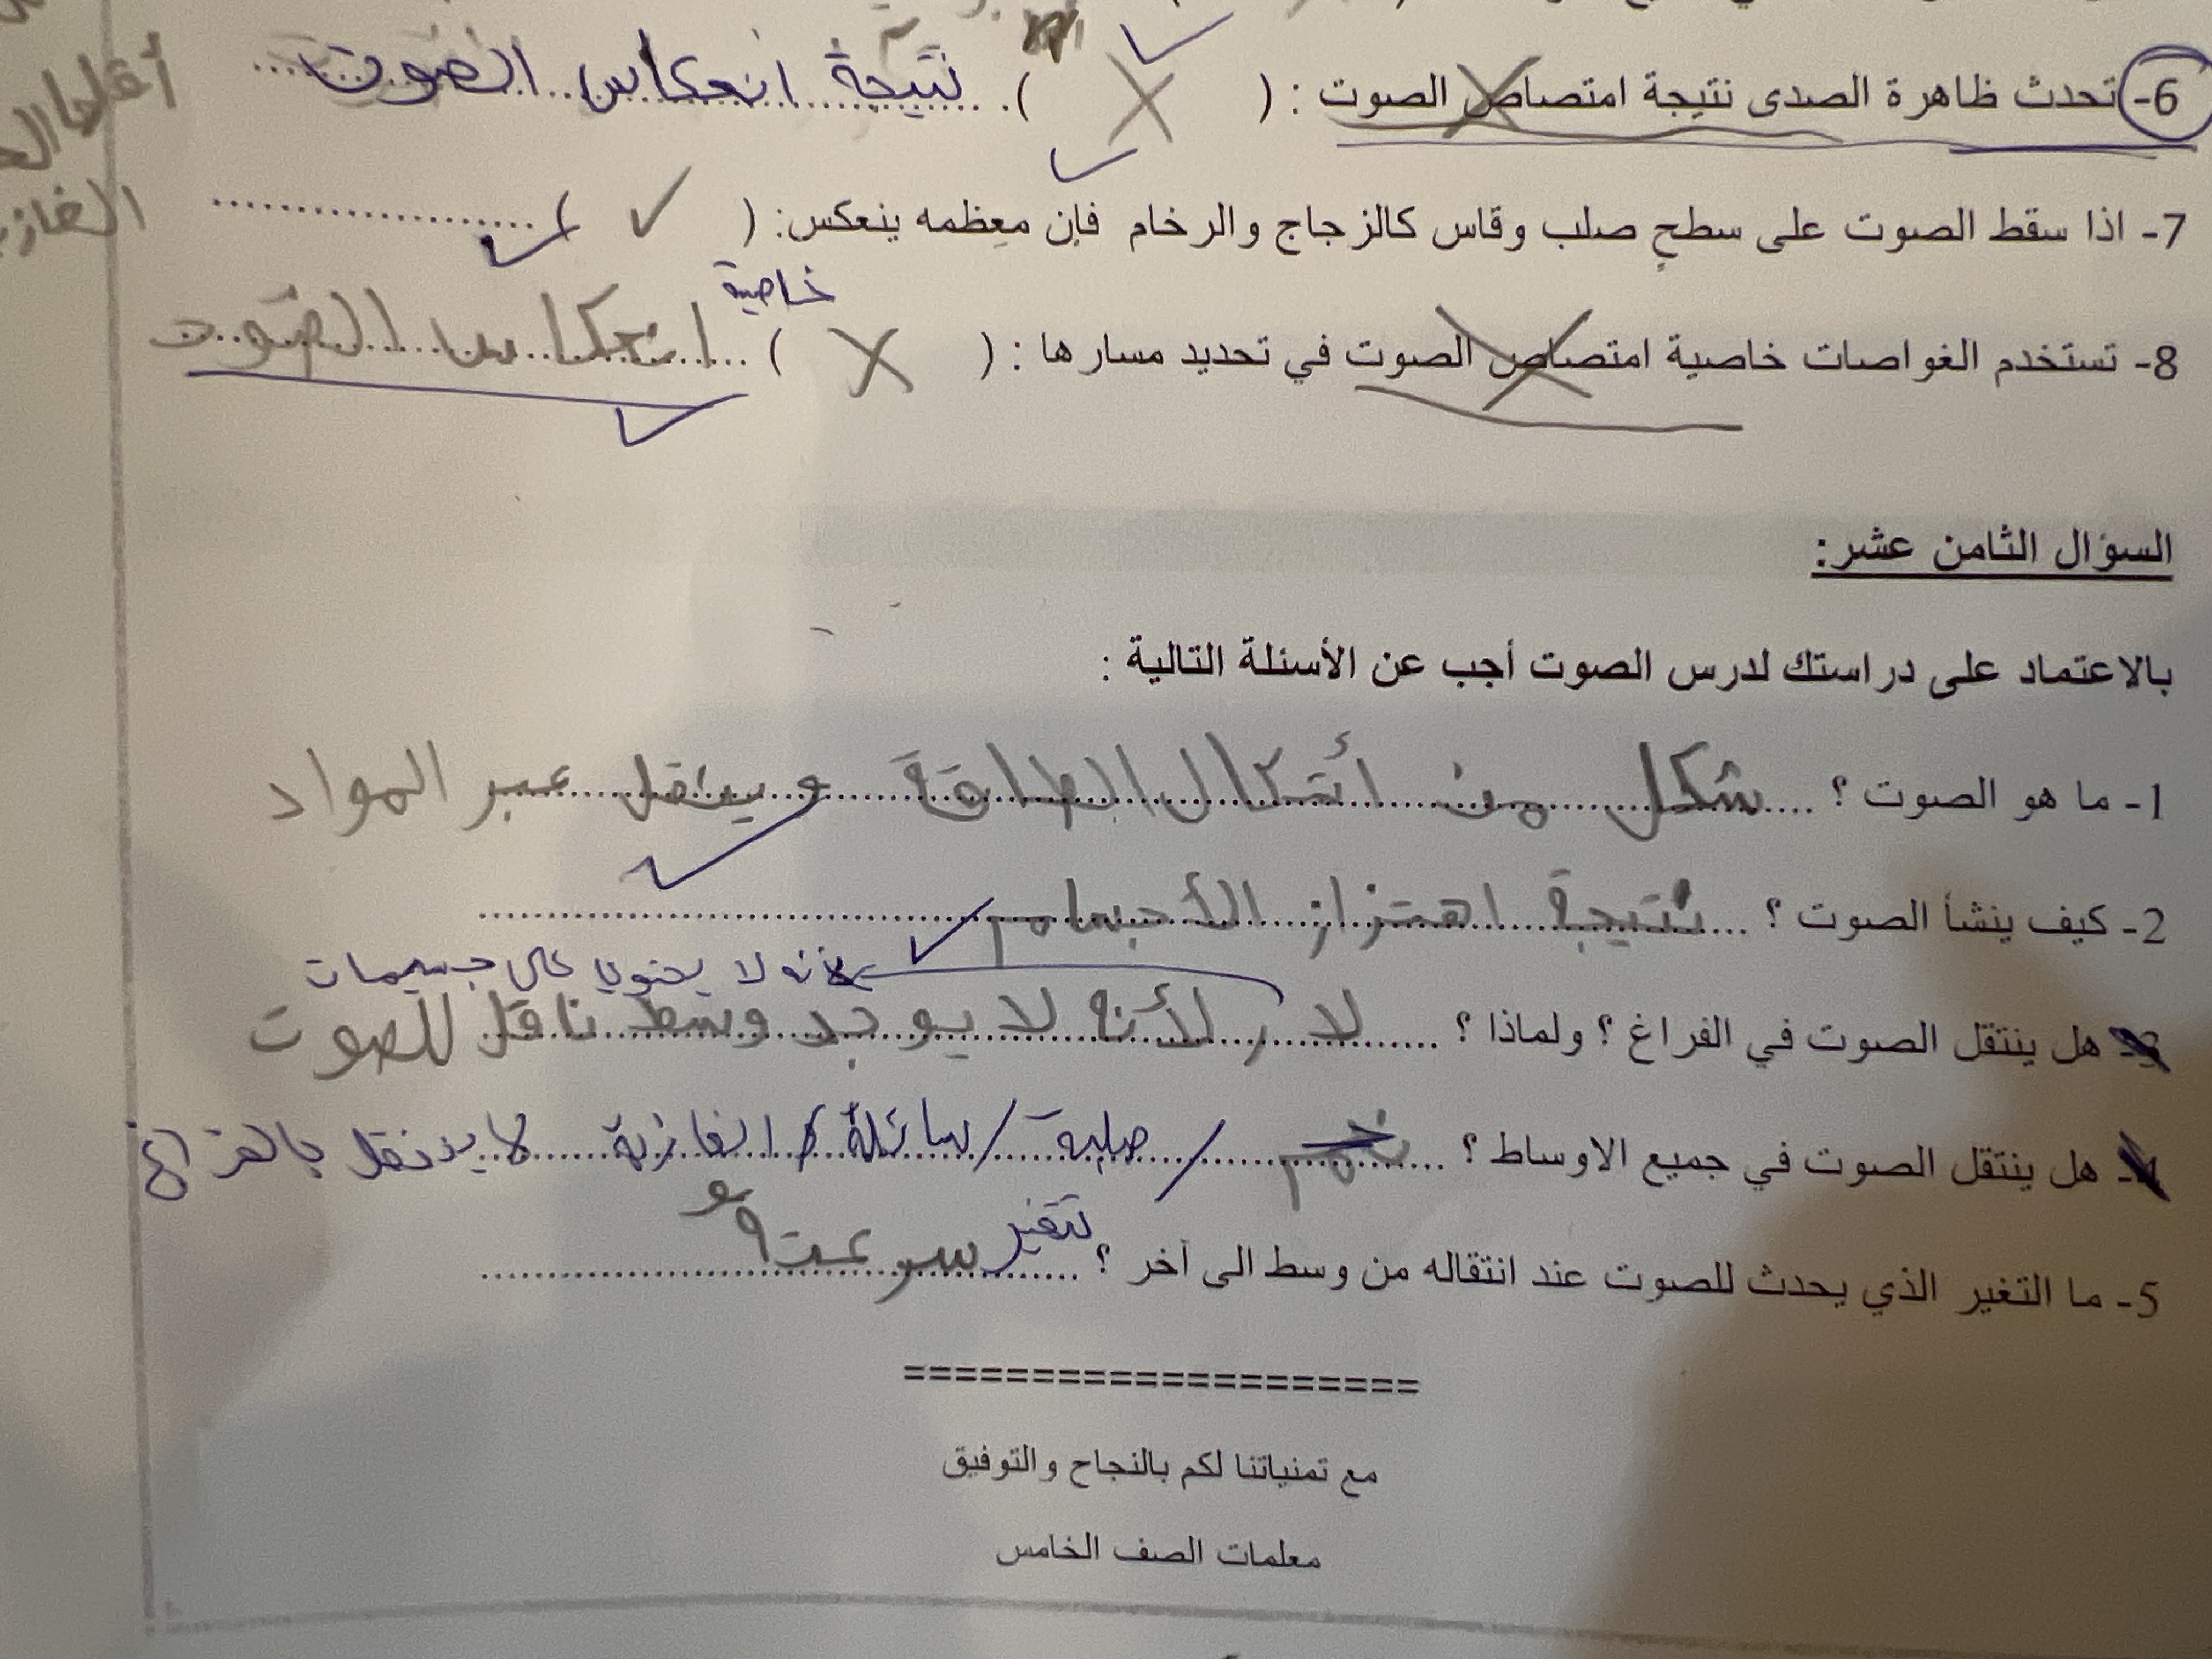 6- تحدث ظاهرة الصدى نتيجة امتصاص الصوت : ( X ) نتيجة انعكاس الصوت
7- اذا سقط الصوت على سطح صلب وقاس كالزجاج والرخام فإن معظمه ينعكس: ( ✓ )
خاصية
8- تستخدم الغواصات خاصية امتصاص الصوت في تحديد مسارها : ( X ) انعكاس الصوت
السؤال الثامن عشر:
بالاعتماد على دراستك لدرس الصوت أجب عن الأسئلة التالية :
1- ما هو الصوت ؟ شكل من أشكال الطاقة وينتقل عبر المواد
2- كيف ينشأ الصوت ؟ نتيجة اهتزاز الأجسام
لأنه لا يحتوي على جسيمات
3- هل ينتقل الصوت في الفراغ ؟ ولماذا ؟ لا , لأنه لا يوجد وسط ناقل للصوت
4- هل ينتقل الصوت في جميع الاوساط ؟ صلبة / سائلة / الغازية لا ينتقل بالفراغ
5- ما التغير الذي يحدث للصوت عند انتقاله من وسط الى آخر ؟ تتغير سرعته
====================
مع تمنياتنا لكم بالنجاح والتوفيق
معلمات الصف الخامس